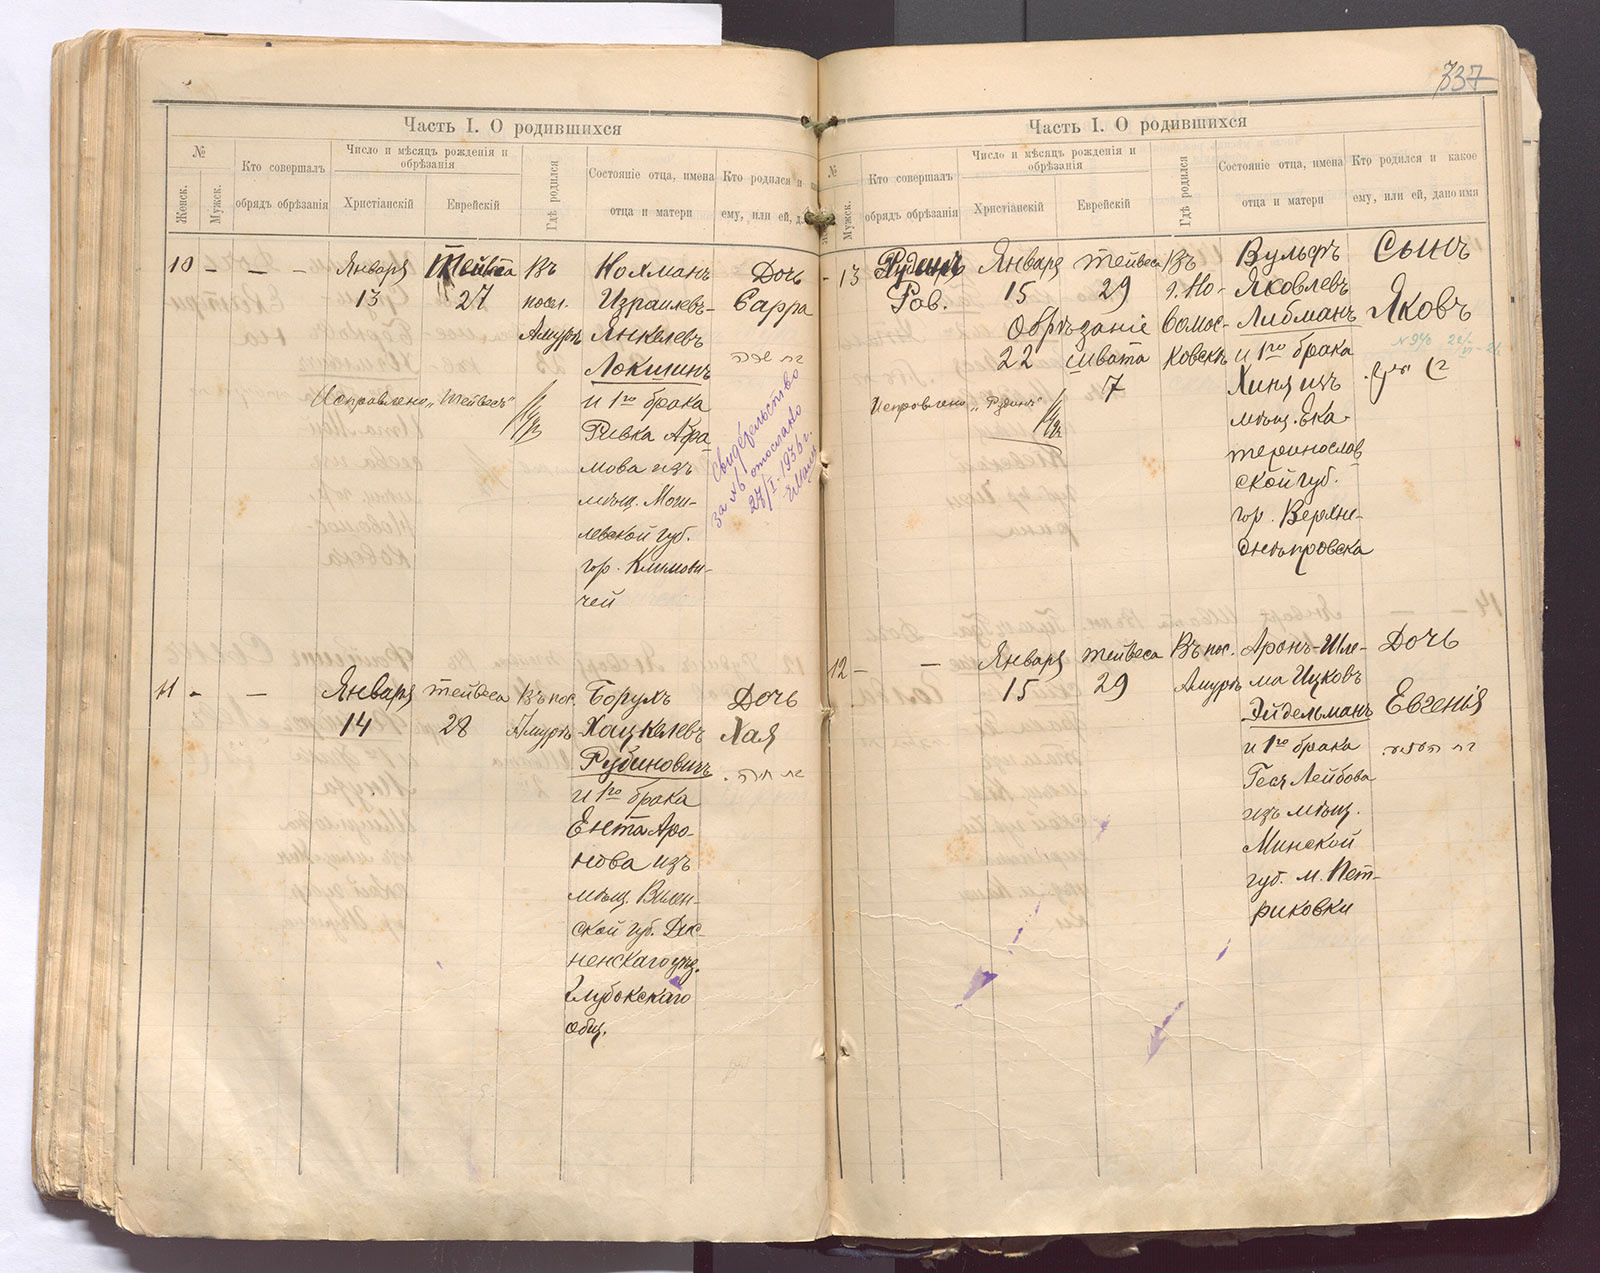 337
Часть I. О родившихся
№
Женск.
Мужск.
Кто совершалъ
обрядъ обрѣзанія
Число и мѣсяцъ рожденія и
обрѣзанія
Христіанскій
Еврейскій
Гдѣ родился
Состояніе отца, имена
отца и матери
Кто родился и
ему, или ей, д
10 - - -
Января
13
Тейвеса
27
Въ
посел.
Амуръ
Нохманъ
Израилевъ-
Янкелевъ
Локшинъ
и 1го брака
Ривка Абра
мова изъ
мѣщ. Моги-
левской губ.
гор. Климови-
чей
Дочь
Сарра
בת שרה
Исправлено "Тейвесъ"
Свидѣтельство
за № отослано
27/I-1936 г.
11 - -
Января
14
Тейвеса
28
Въ пос.
Амуръ
Борухъ
Хацкелевъ
Рубиновичъ
и 1го брака
Ента Аро-
нова изъ
мѣщ. Вилен-
ской губ. Дис-
ненскаго уѣз.
Глубокскаго
общ.
Дочь
Хая
בת חיה.
Часть I. О родившихся
№
Мужск.
Кто совершалъ
обрядъ обрѣзанія
Число и мѣсяцъ рожденія и
обрѣзанія
Христіанскій
Еврейскій
Гдѣ родился
Состояніе отца, имена
отца и матери
Кто родился и какое
ему, или ей, дано имя
- 13
Рудинъ
Января
15
Тейвеса
29
Обрѣзаніе
22 Швата
7
Въ
г. Но-
вомос-
ковскъ
Вульфъ
Яковлевъ
Либманъ
и 1го брака
Хиня изъ
мѣщ. Ека-
теринослав
ской губ.
гор. Верхне-
днѣпровска
Сынъ
Яковъ
Исправлено "Рудинъ"
12 - -
Января
15
Тейвеса
29
Въ пос.
Амуръ
Аронъ-Шле-
ма Ицковъ
Эйдельманъ
и 1го брака
Геся Лейбова
изъ мѣщ.
Минской
губ. м. Пет-
риковки
Дочь
Евгенія